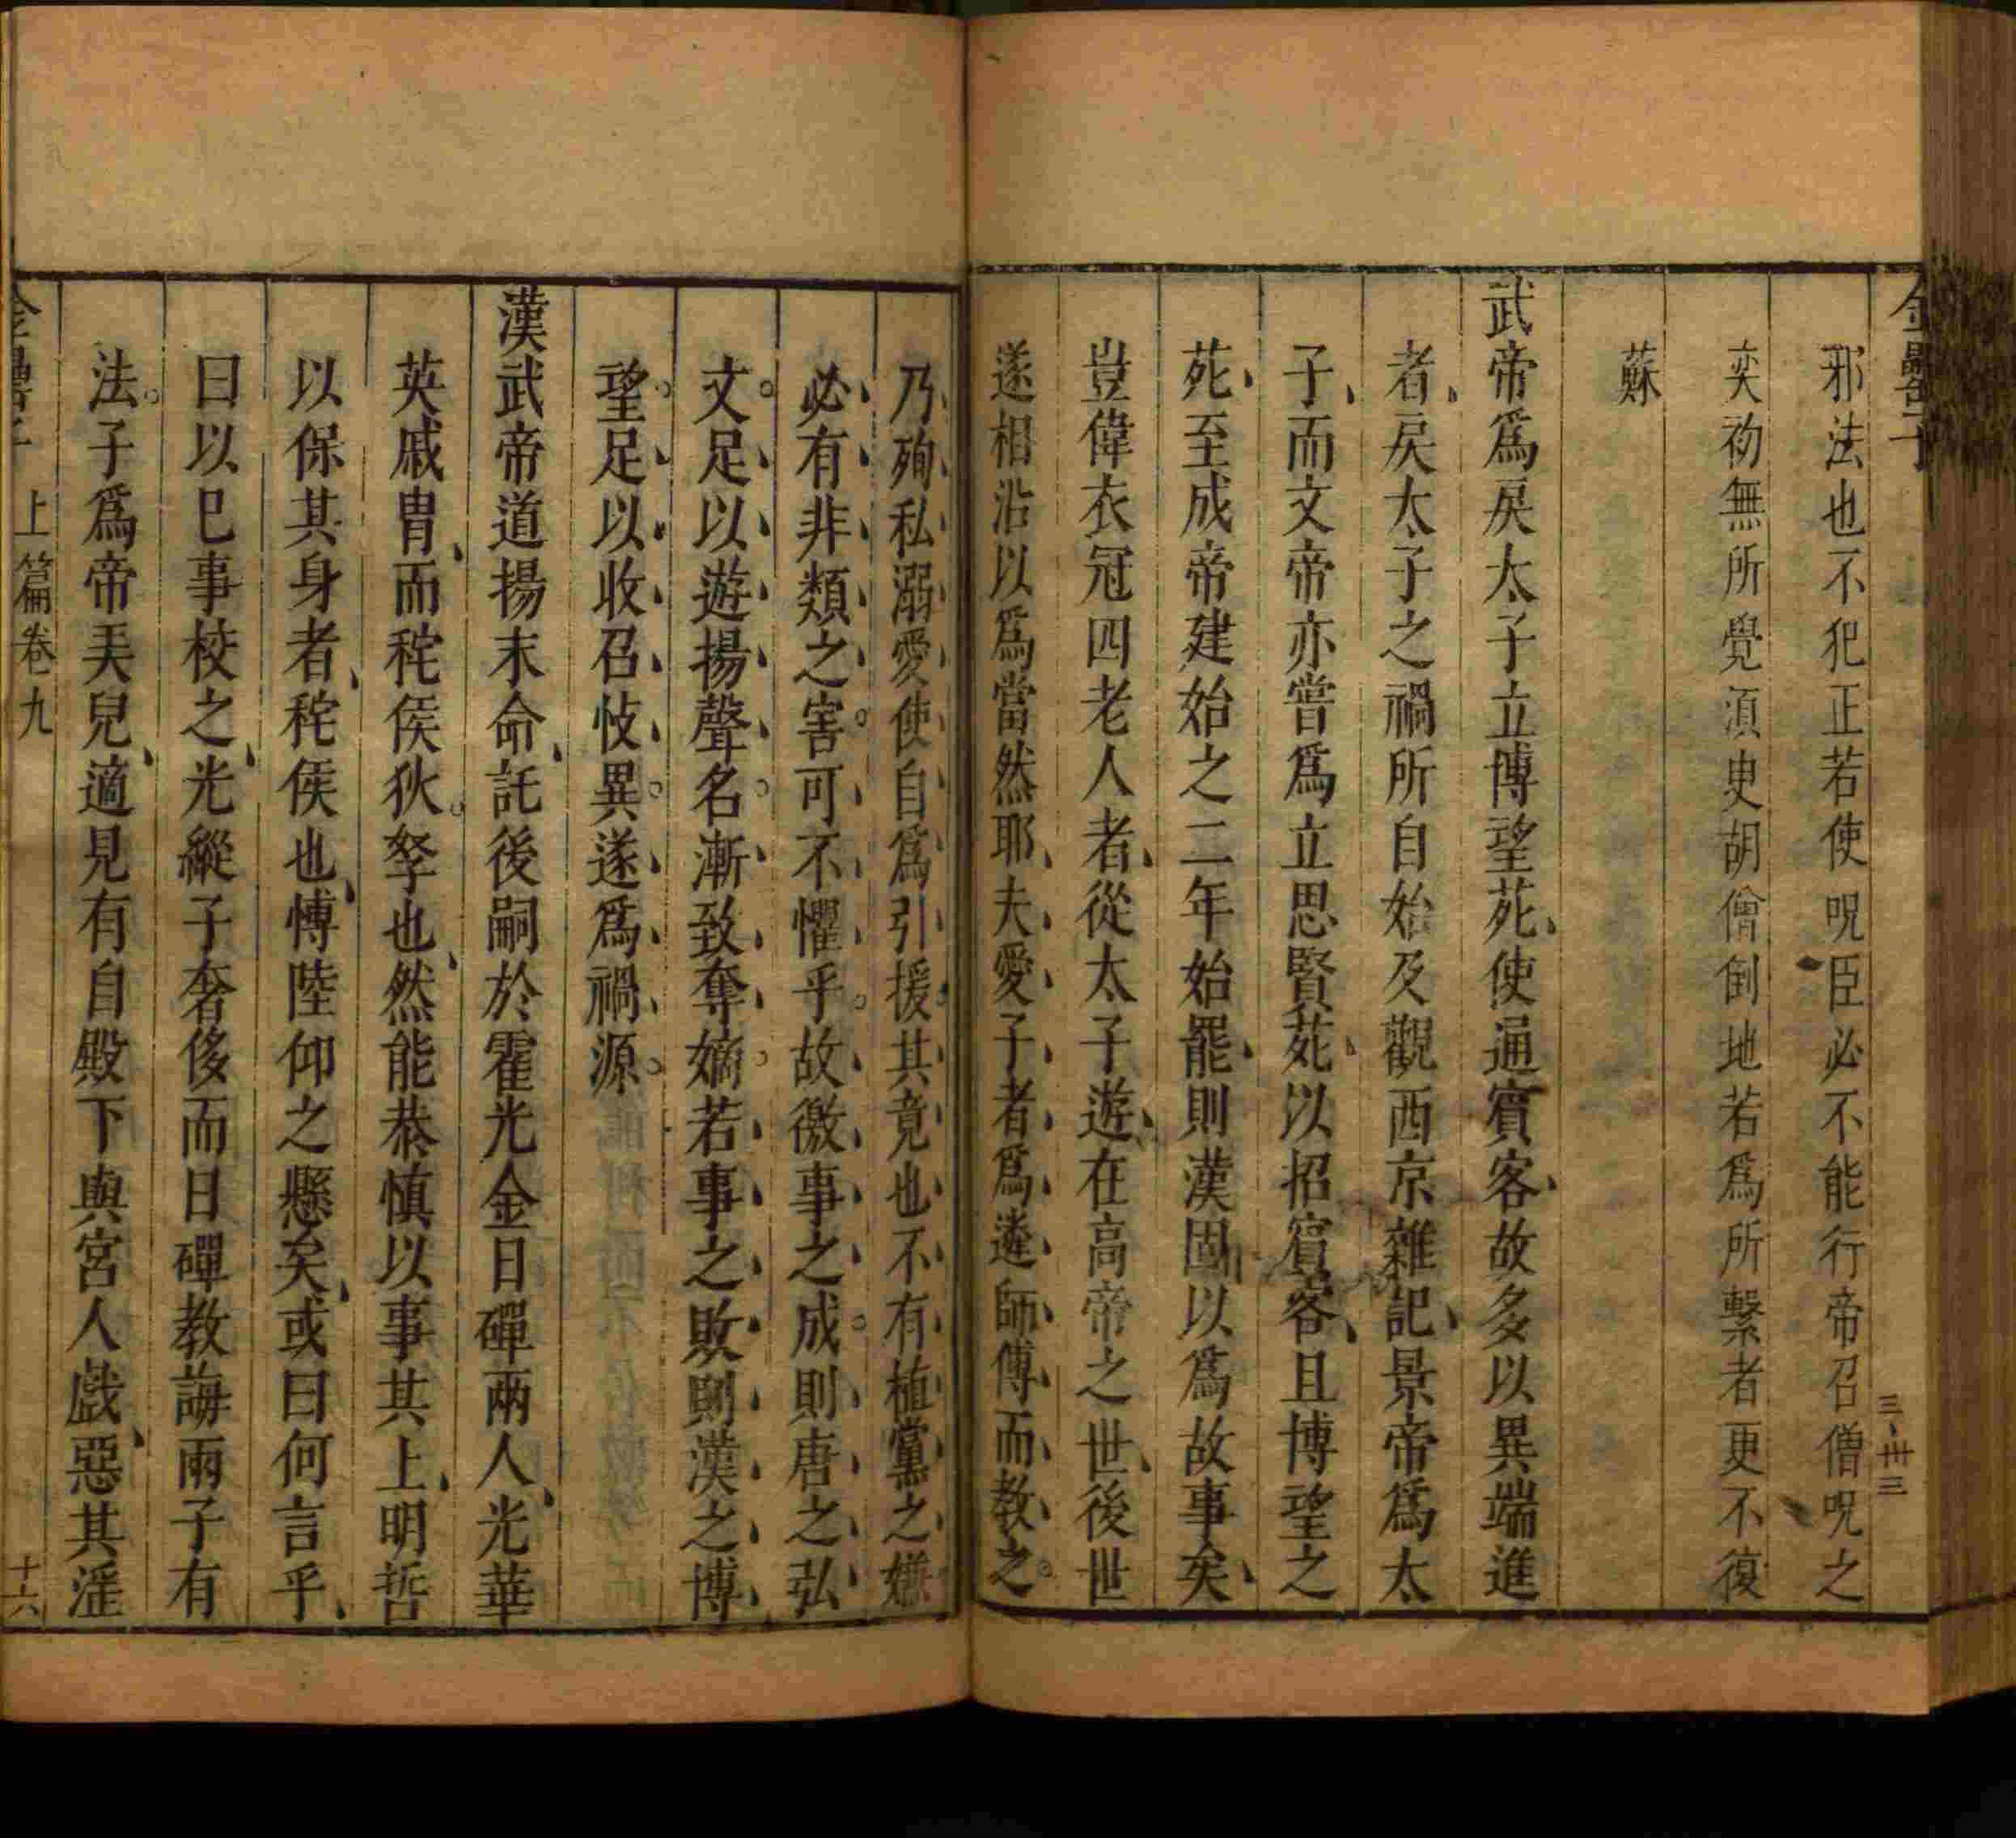 金罍子
三、卅三
邪法也不犯正若使呪臣必不能行帝召僧呪之
奕初無所覺湏臾胡僧倒地若爲所繫者更不復
蘇
武帝爲戾太子立博望苑、使通賓客、故多以異端進
者、戾太子之禍所自始及觀西京雜記、景帝爲太
子、而文帝亦嘗爲立思賢苑、以招賓客、且博望之
苑、至成帝建始之二年始罷、則漢固以爲故事矣、
豈偉衣冠四老人者、從太子遊、在高帝之世、後世
遂相沿以爲當然耶、夫愛子者、爲遴師傅而教之。
乃殉私溺愛使自爲引援。其竟也不有植黨之嫌
必有非類之害。可不懼乎。故徼事之成。則唐之弘
文。足以遊揚聲名。漸致奪嫡。若事之敗則漢之博
望。足以收召忮異。遂爲禍源。
漢武帝道揚末命、託後嗣於霍光金日磾兩人、光華
英戚胄、而秺侯狄。孥也、然能恭慎以事其上、明哲
以保其身者、秺侯也、博陸仰之懸矣、或曰何言乎、
曰以巳事校之、光縱子奢侈而日磾教誨兩子有
法。子爲帝弄兒、適見有自殿下與宮人戲、惡其淫
金罍子
上篇卷九
十六